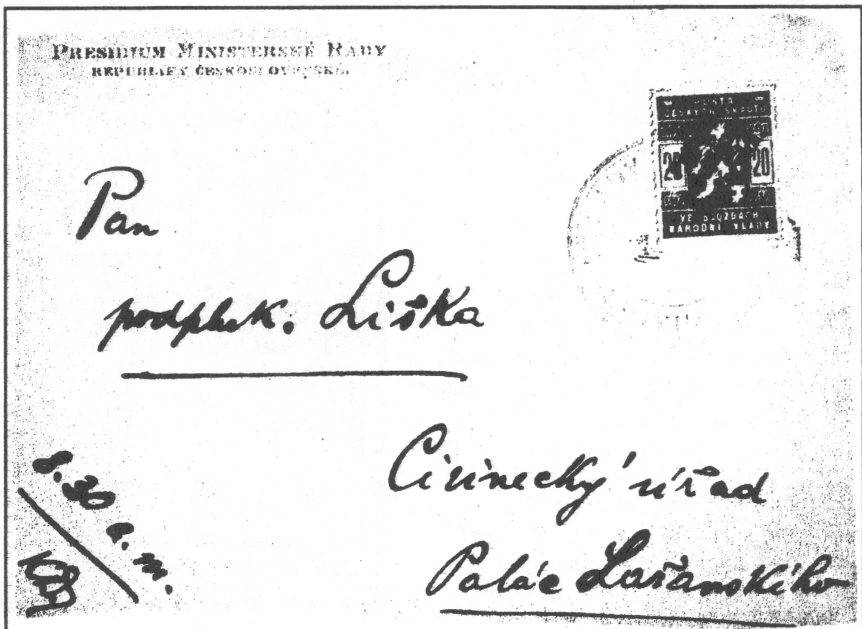 PRESIDIUM MINISTERSKÉ RADY
REPUBLIKY ČESKOSLOVENSKÉ.
POŠTA
ČESKÝCH SKAUTŮ
20 20
VE SLUŽBÁCH
NÁRODNÍ VLÁDY
Pan
podpluk. Liška
Cizinecký úřad
Palác Lažanského
8.30 a.m.